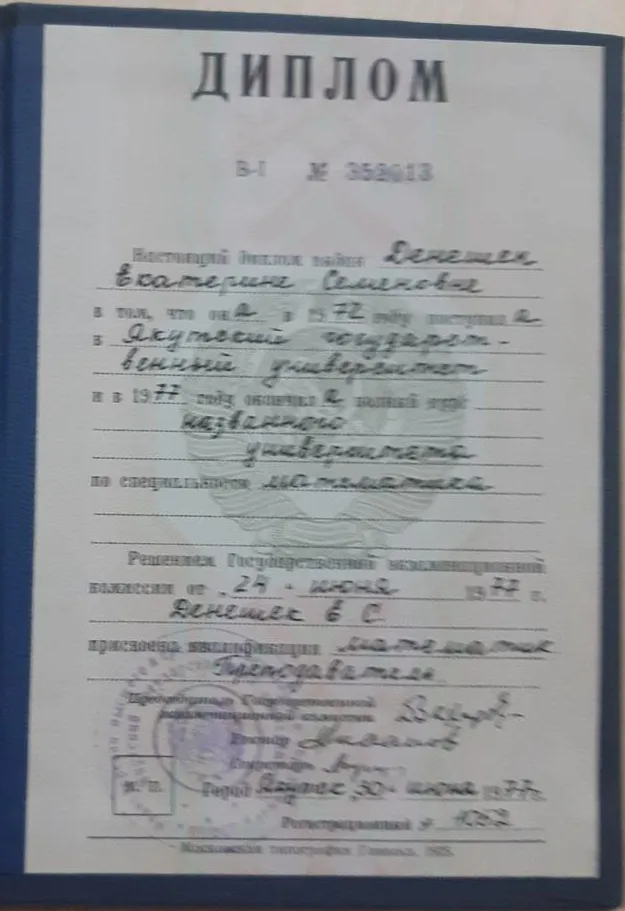 ДИПЛОМ
В-I № 352013
Настоящий диплом выдан Денешек
Екатерине Семеновне
в том, что она в 1972 году поступила
в Якутский государст-
венный университет
и в 1977 году окончила полный курс
названного
университета
по специальности математика
Решением Государственной экзаменационной
комиссии от 24 июня 1977 г.
Денешек Е С.
присвоена квалификация математик
Преподаватель
Председатель Государственной
экзаменационной комиссии
Ректор
Секретарь
М. П.
Город Якутск 30 июня 1977 г.
Регистрационный № 1052
Московская типография Гознака. 1975.